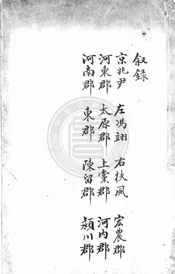 叙録
京兆尹 左馮翊 右扶風 宏農郡
河東郡 太原郡 上黨郡 河内郡
河南郡 東郡 陳留郡 潁川郡